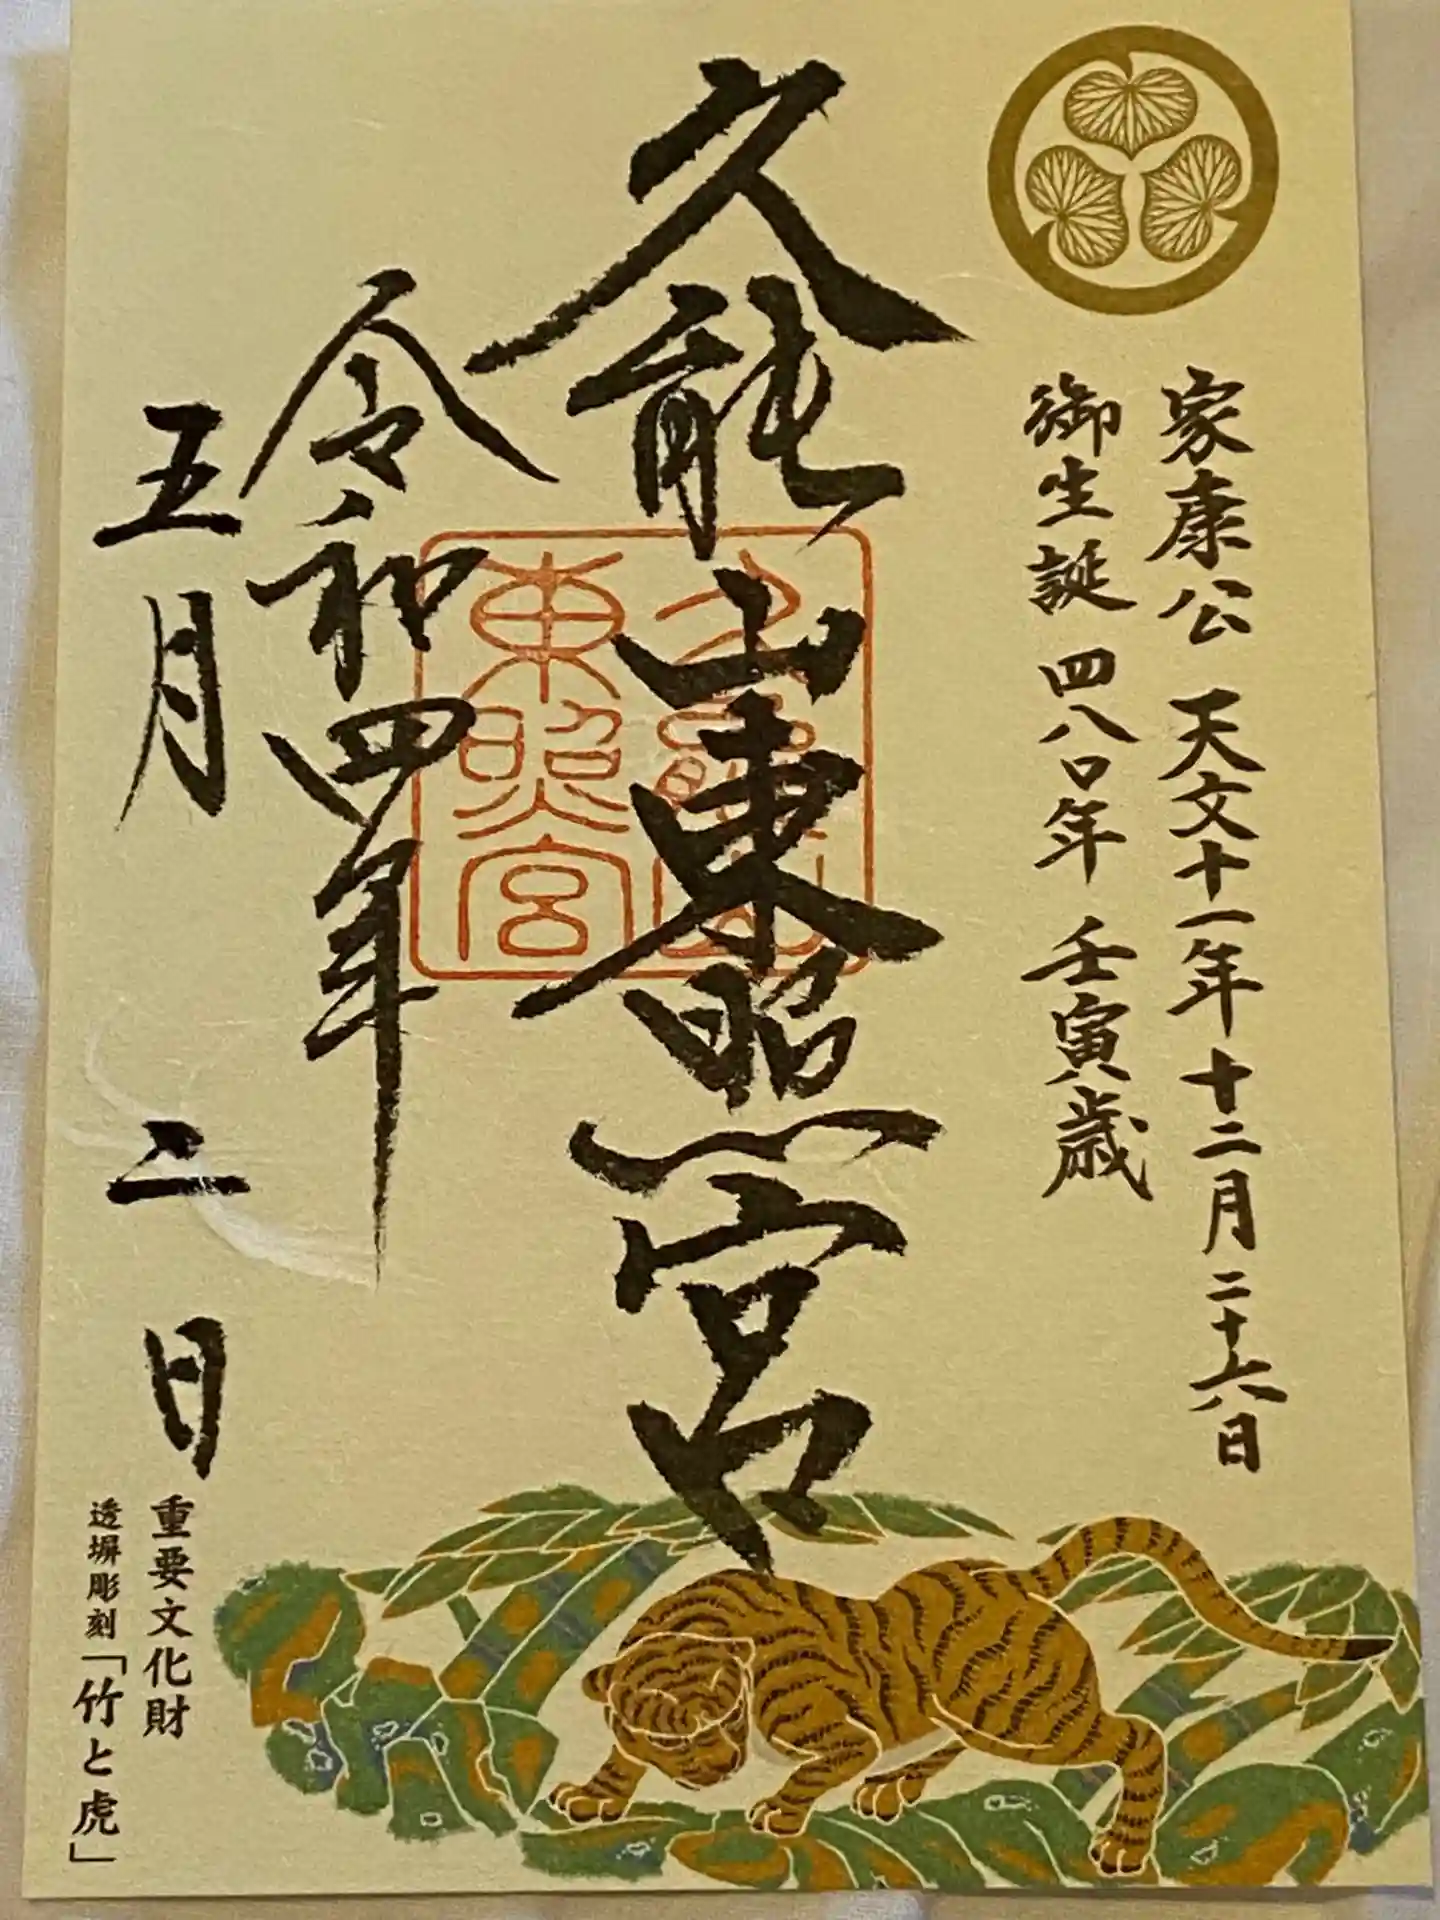 家康公 天文十一年十二月二十六日
御生誕 四八〇年 壬寅歳
久能山東照宮
久能山
東照宮
令和四年
五月二日
重要文化財
透塀彫刻「竹と虎」